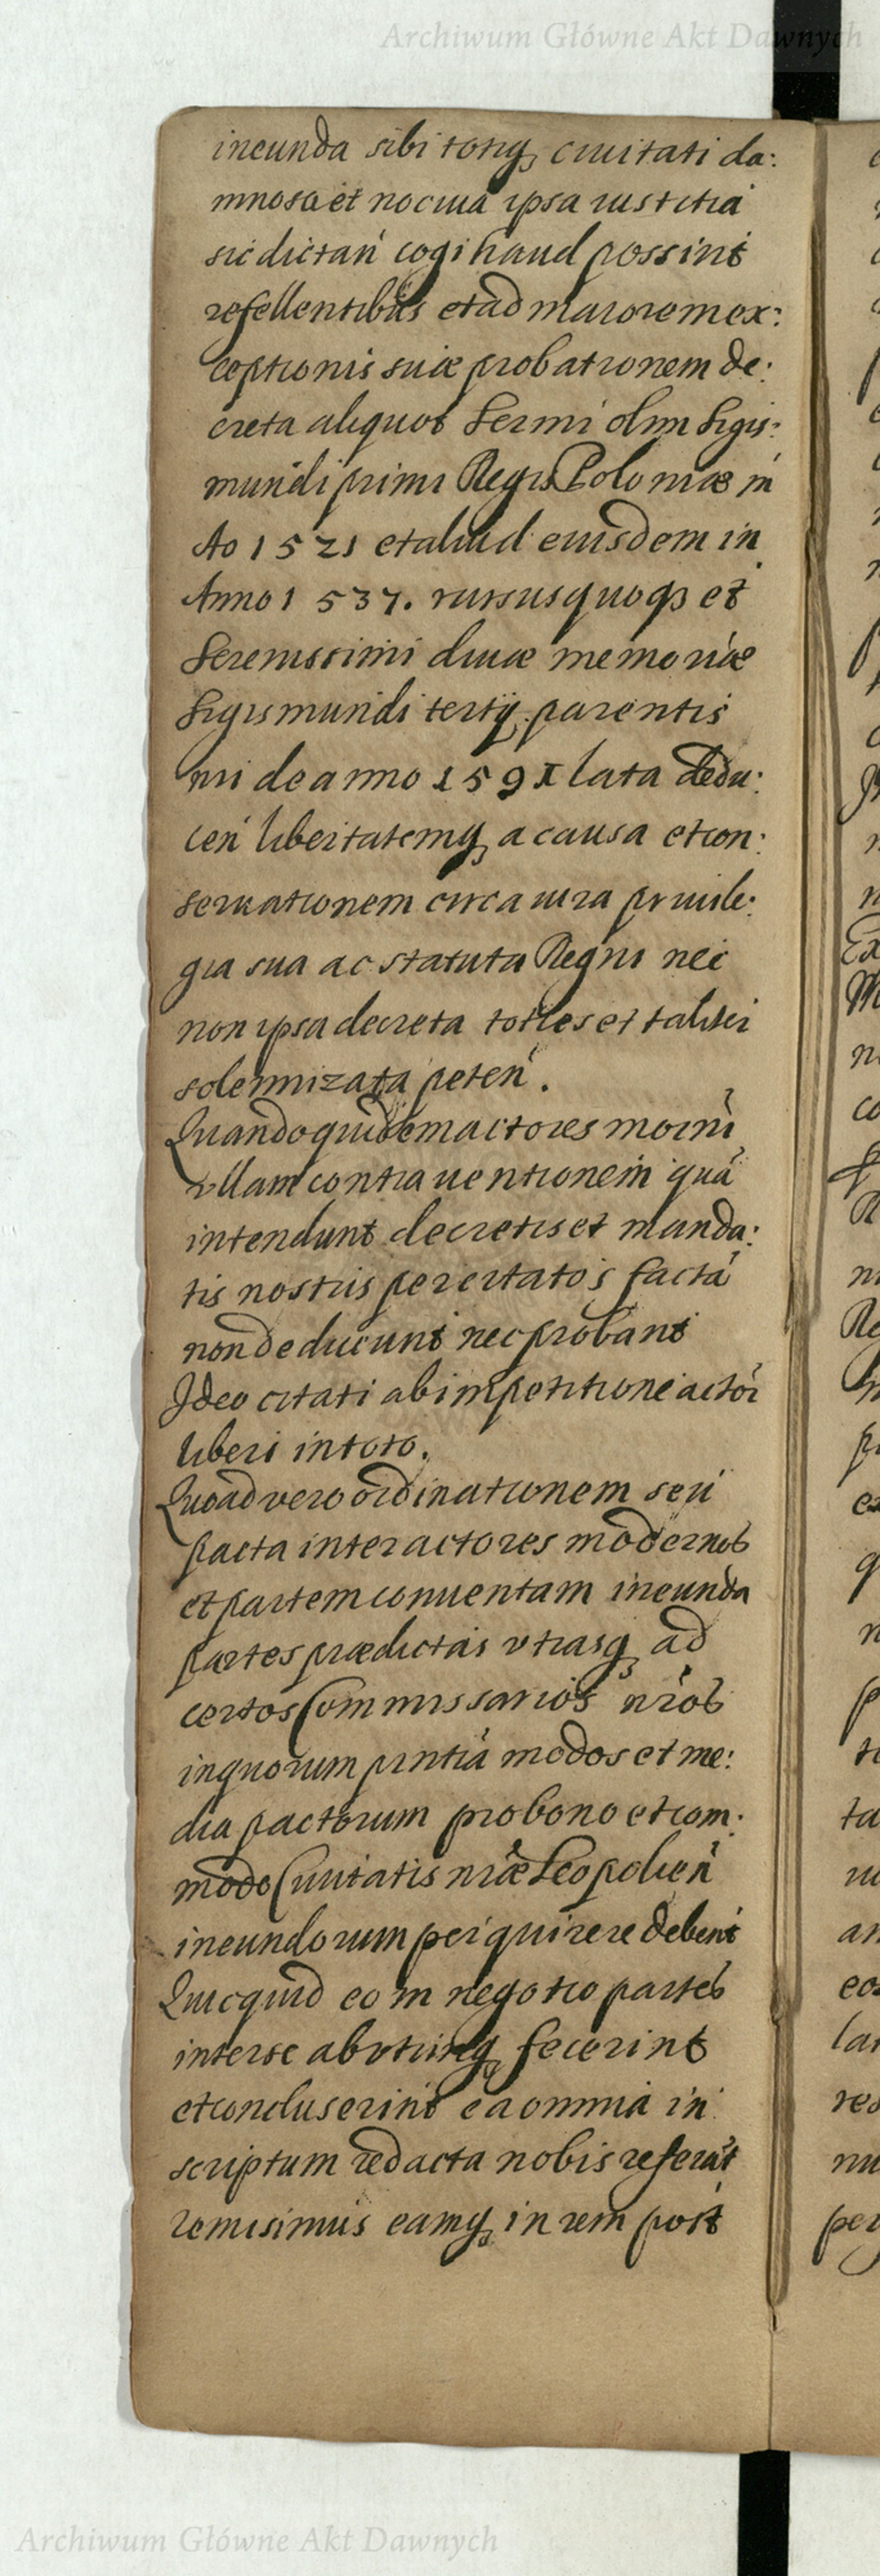 Archiwum Główne Akt Dawnych
ineunda sibi totiq, ciuitati da:
mnosa et nociua ipsa iustitia
sic dictan cogi haud possint
refellentibus et ad maiorem ex:
ceptionis suæ probationem de:
creta aliquot Sermi olim Sigis:
mundi primi Regis Poloniæ in
Ao 1521 et aliud eiusdem in
Anno 1537. rursus quoq et
Serenissimi diuæ memoriæ
Sigismundi tertij parentis
nri de anno 1591 lata dedu:
cen libertatemq, a causa et con:
seruationem circa iura priuile:
gia sua ac statuta Regni nec
non ipsa decreta toties et taliter
solennizata peten.
Quandoquidem actores moerni
vllam contrauentionem quā
intendunt decretis et manda:
tis nostris per citatos factā
non deducunt nec probant
Ideo citati ab impetitione actor
liberi in toto.
Quoad vero ordinationem seu
pacta inter actores modernos
et partem conuentam ineunda
partes prædictas vtrasq, ad
certos Commissarios nros
in quorum pntia modos et me:
dia pactorum pro bono et com:
modo Ciuitatis nræ Leopolien
ineundorum perquirere debent
Quicquid eo in negotio partes
inter se ab vtrinq, fecerint
et concluserint ea omnia in
scriptum redacta nobis referat
remisimus eamq, in rem post
Archiwum Główne Akt Dawnych